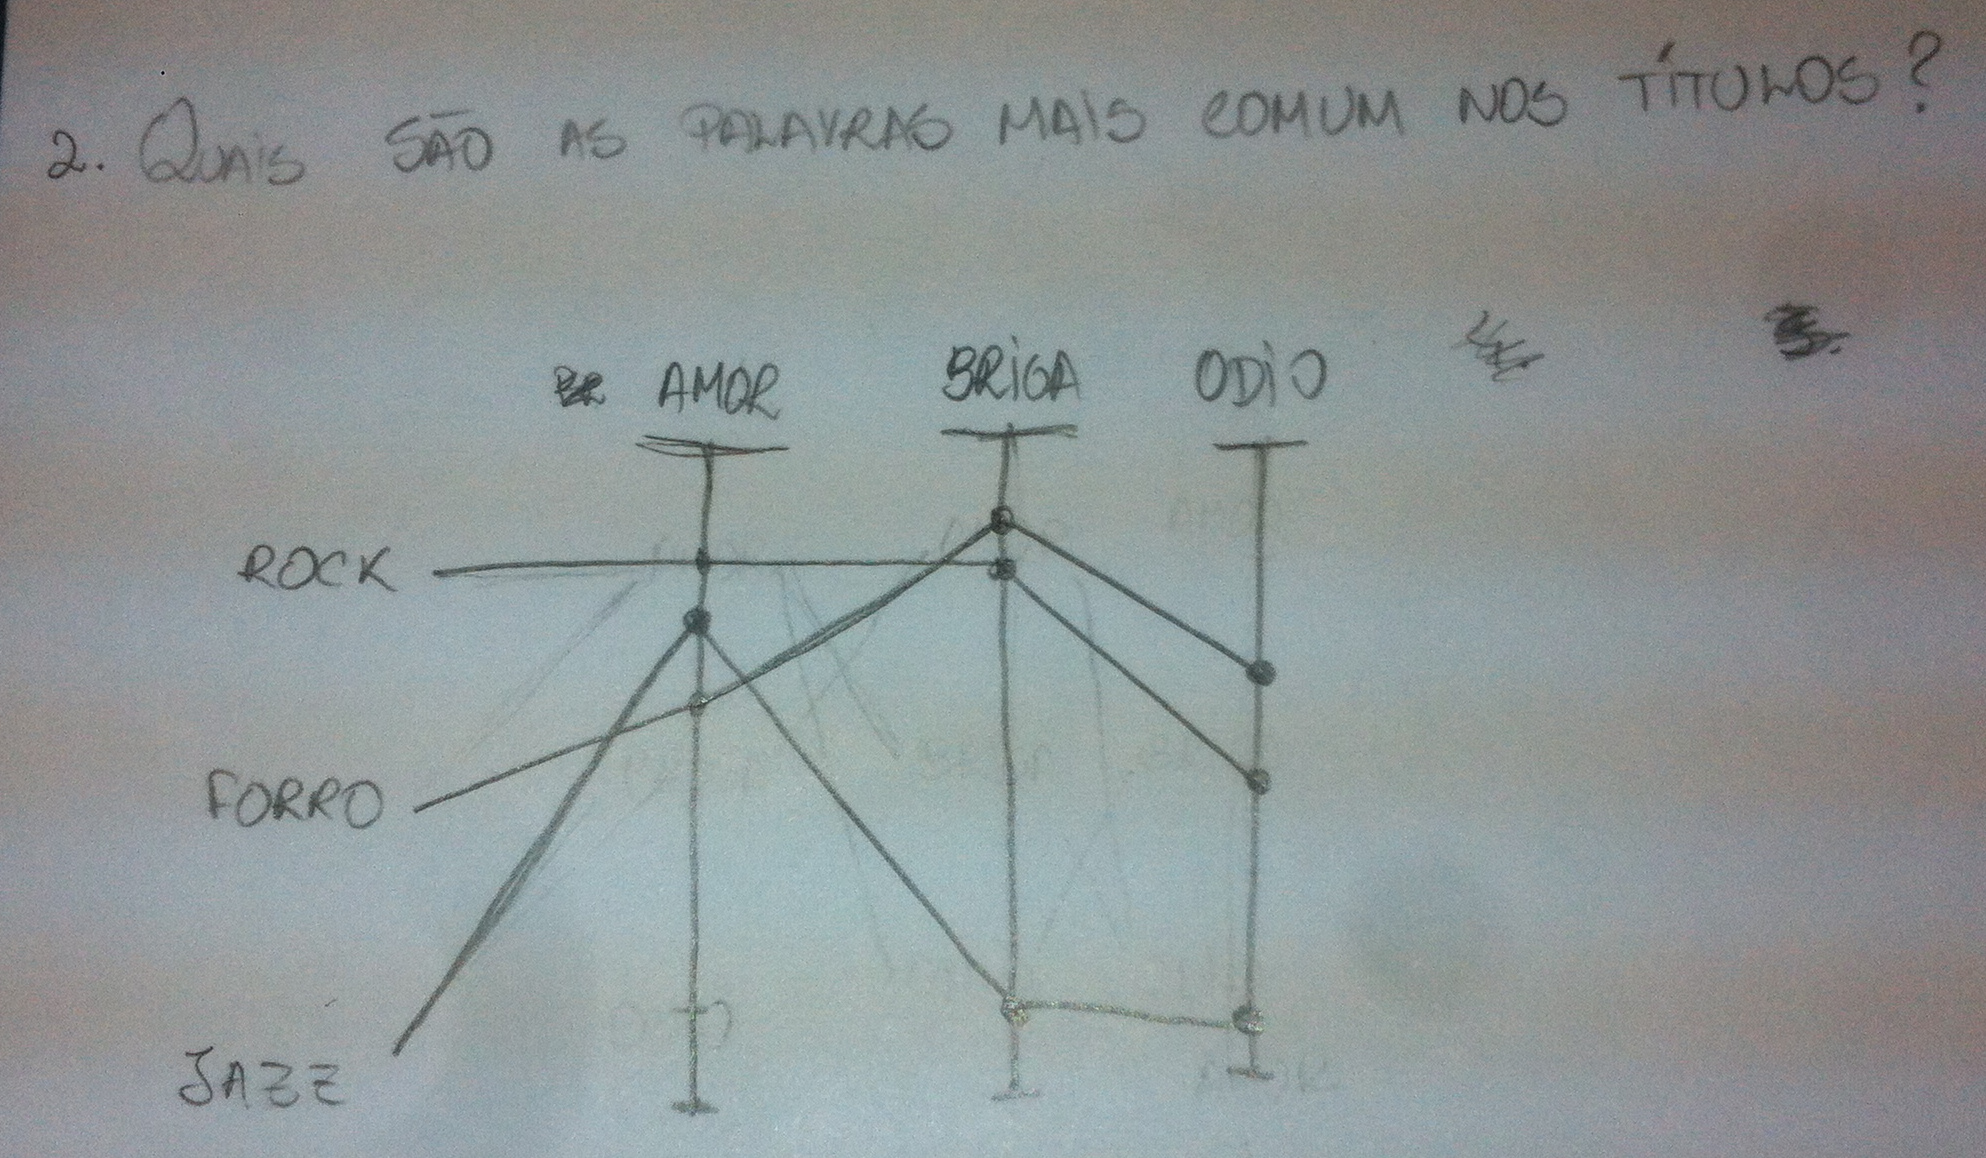 2. QUAIS SÃO AS PALAVRAS MAIS COMUM NOS TÍTULOS?
AMOR BRIGA ODIO
ROCK
FORRO
JAZZ